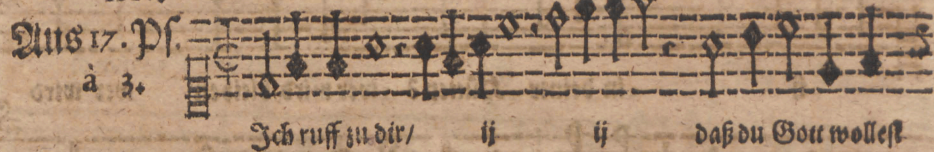 Aus 17. Ps.
à 3.
Ich ruff zu dir/ ij ij daß du Gott wollest